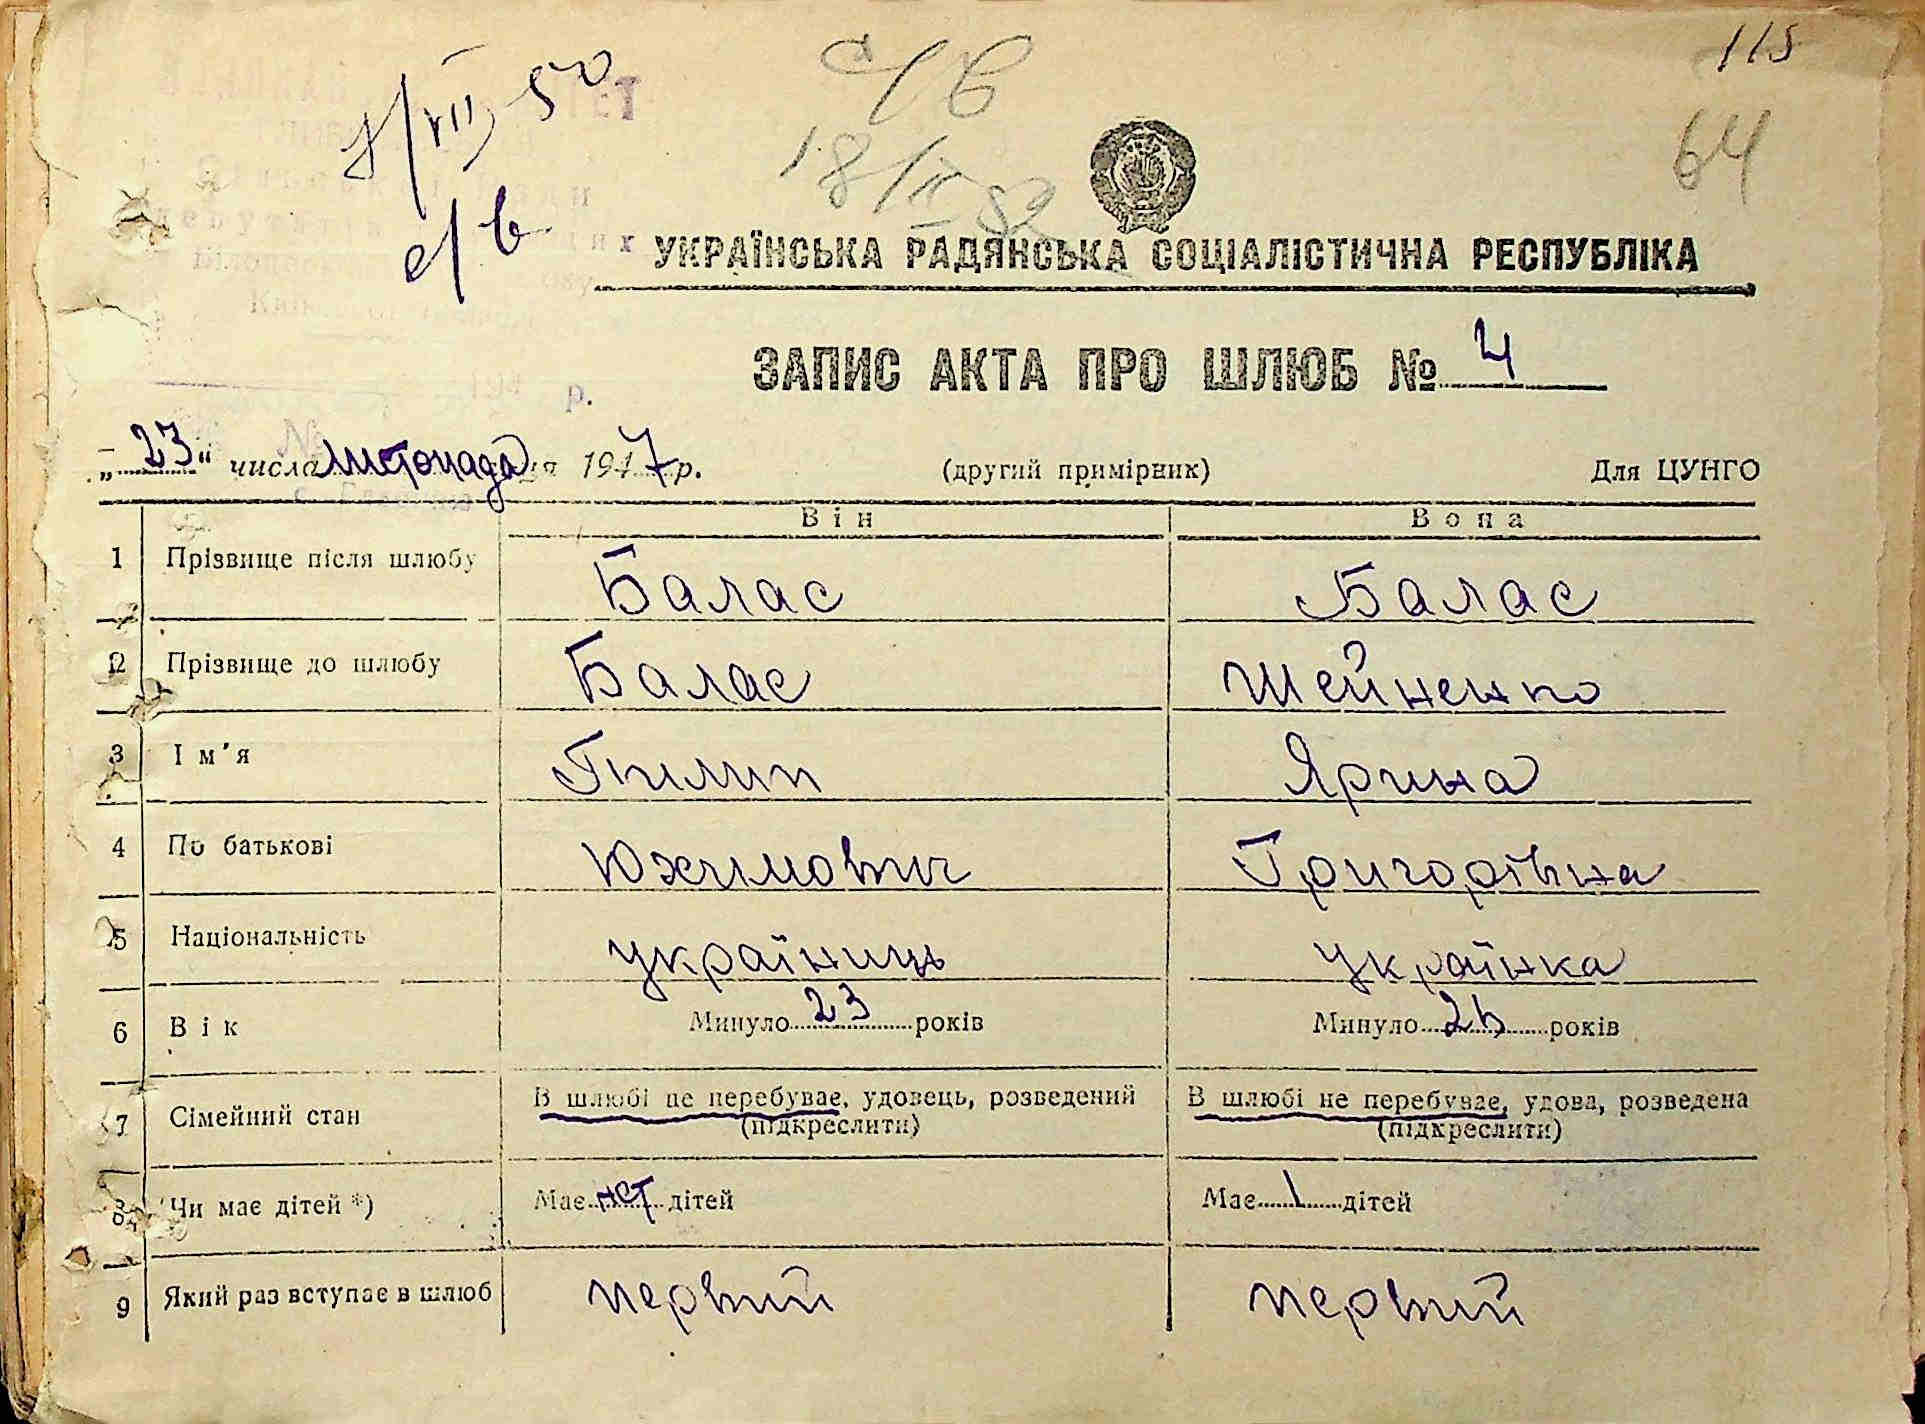 115
64
8/VII 50
с/в
с/в
18/II 52
УКРАЇНСЬКА РАДЯНСЬКА СОЦІАЛІСТИЧНА РЕСПУБЛІКА
ЗАПИС АКТА ПРО ШЛЮБ № 4
„23" числа листопада 1947 р. (другий примірник) Для ЦУНГО
Він Вона
1 Прізвище після шлюбу Балас Балас
2 Прізвище до шлюбу Балас Шейненко
3 Ім'я Пилип Ярина
4 По батькові Юхимович Григорівна
5 Національність україниць українка
6 Вік Минуло 23 років Минуло 26 років
7 Сімейний стан В шлюбі не перебуває, удовець, розведений В шлюбі не перебуває, удова, розведена
(підкреслити) (підкреслити)
8 Чи має дітей *) Має нет дітей Має 1 дітей
9 Який раз вступає в шлюб первий первий